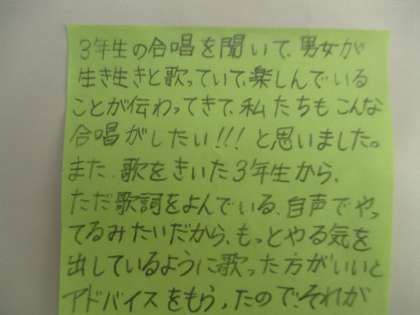 3年生の合唱を聞いて、男女が
生き生きと歌っていて、楽しんでいる
ことが伝わってきて、私たちもこんな
合唱がしたい!!!と思いました。
また、歌をきいた3年生から、
ただ歌詞をよんでいる、自声でやっ
てるみたいだから、もっとやる気を
出しているように歌った方がいいと
アドバイスをもらったので、それが